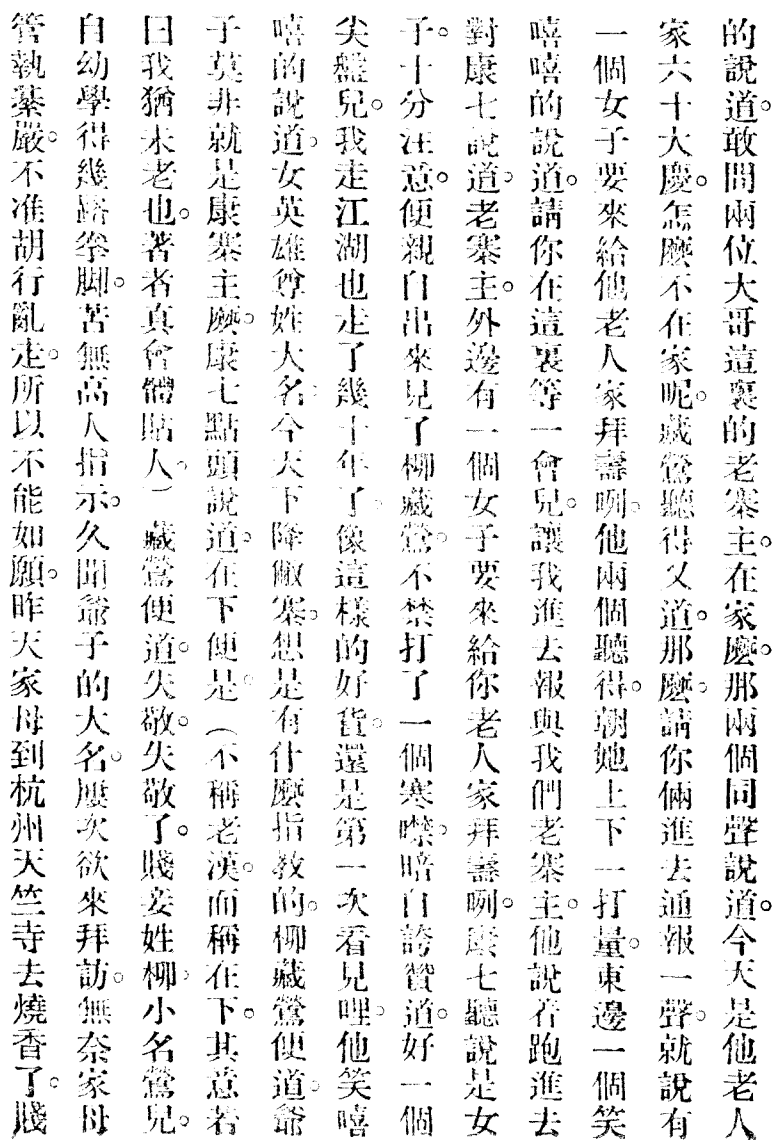 的說道。敢問兩位大哥這裏的老寨主。在家麽。那兩個同聲說道。今天是他老人
家六十大慶。怎麽不在家呢。藏鶯聽得又道。那麽。請你倆進去通報一聲。就說有
一個女子要來給他老人家拜壽咧。他兩個聽得。朝她上下一打量。東邊一個笑
嘻嘻的說道。請你在這裏等一會兒。讓我進去報與我們老寨主。他說着跑進去
對康七說道。老寨主。外邊有一個女子要來給你老人家拜壽咧。康七聽說是女
子。十分注意。便親自出來見了柳藏鶯。不禁打了一個寒噤。暗自誇贊道。好一個
尖盤兒。我走江湖也走了幾十年了。像這樣的好貨。還是第一次看見哩。他笑嘻
嘻的說道。女英雄尊姓大名。今天下降敝寨。想是有什麽指教的。柳藏鶯便道。爺
子莫非就是康寨主麽。康七點頭說道。在下便是。（不稱老漢。而稱在下。其意若
曰我猶未老也。著者真會體貼人。）藏鶯便道。失敬。失敬了。賤妾姓柳。小名鶯兒。
自幼學得幾路拳脚。苦無高人指示。久聞爺子的大名。屢次欲來拜訪。無奈家母
管執綦嚴。不准胡行亂走。所以不能如願。昨天家母到杭州天竺寺去燒香了。賤